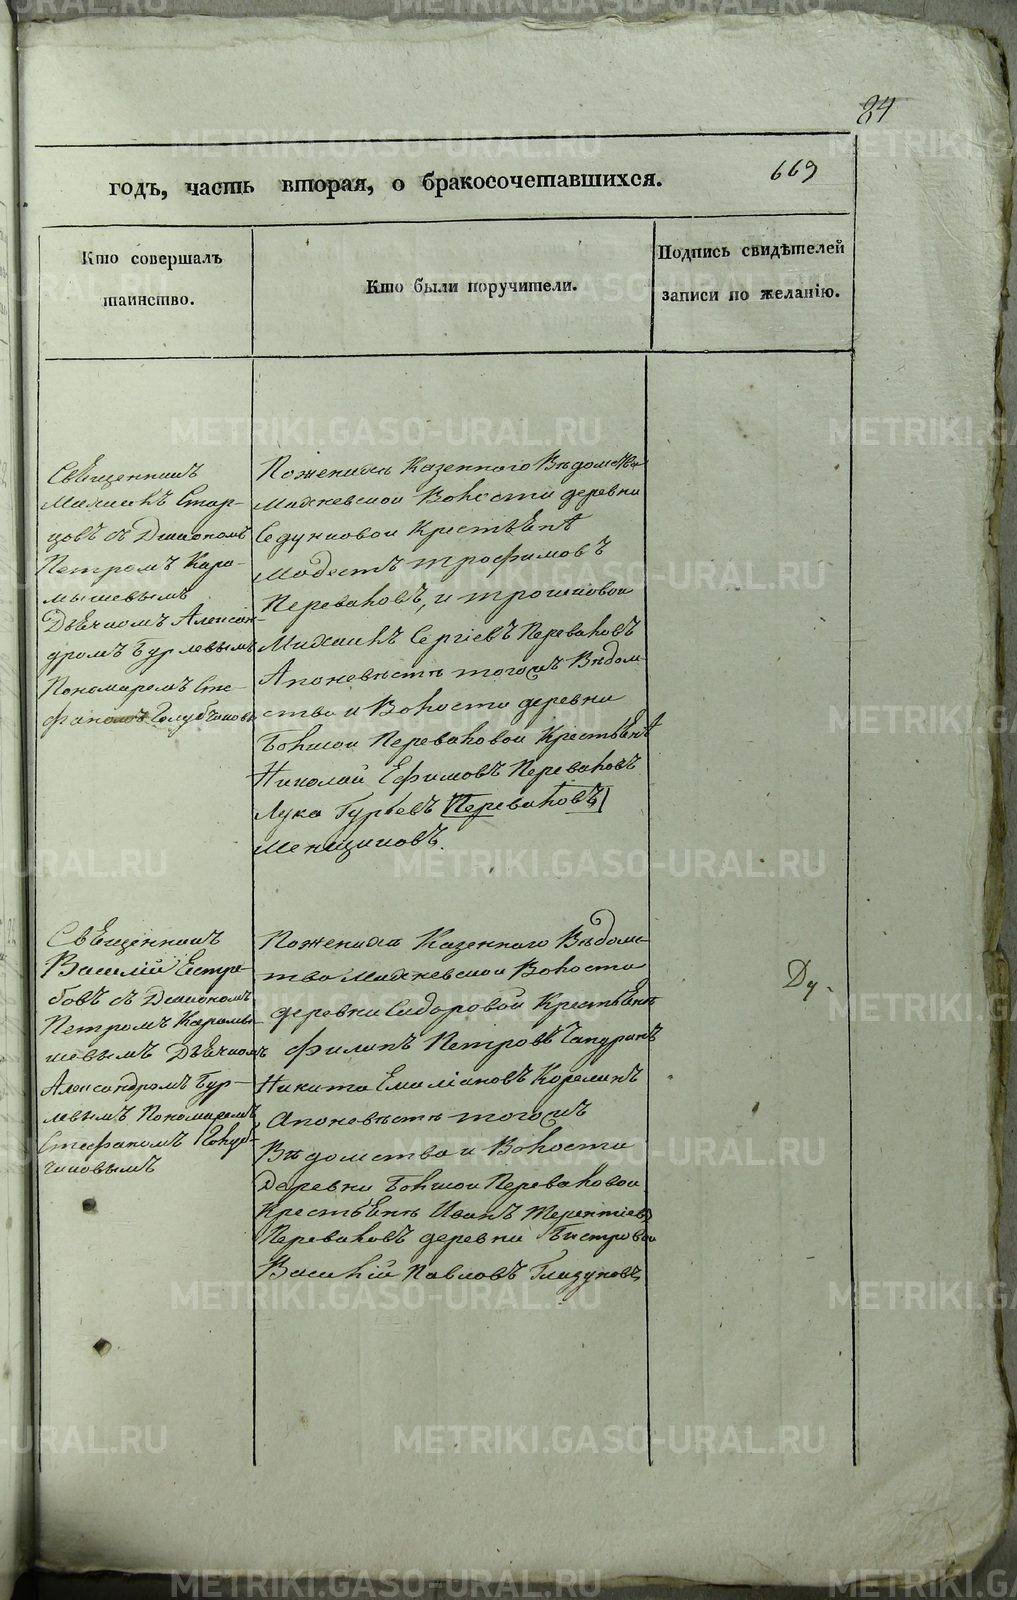 84
669
годъ, часть вторая, о бракосочетавшихся.
Кто совершалъ
таинство.
Кто были поручители.
Подпись свидѣтелей
записи по желанію.
Священникъ
Стар-
цовъ съ Діакономъ
Петромъ Кара-
мышевымъ
Дьячкомъ Алексан-
дромъ Бурлевымъ
Пономаремъ Сте-
фаномъ Голубчиковы
По женихѣ Казеннаго Вѣдомства
Махневской Волости деревни
Седунковой Крестьянѣ
Модестъ Трофимовъ
Переваловъ, и Трошковой
Михаилъ Сергіевъ Переваловъ
А по невѣстѣ тогожъ Вѣдом
ства и Волости деревни
Большой Переваловой Крестьянѣ
Николай Ефимовъ Переваловъ
Лука Гурьевъ Переваловъ
Менщиковъ.
Священникъ
Василій Ястре-
бовъ съ Діакономъ
Петромъ Карамы-
шевымъ Дьячкомъ
Александромъ Бур-
левымъ Пономаремъ
Стефаномъ Голуб-
чиковымъ
По женихѣ Казеннаго Вѣдомс-
тва Махневской Волости
деревни Сидоровой Крестьянѣ
Филипъ Петровъ Чапуринъ
Никита Емиліановъ Корелинъ
А по невѣстѣ тогожъ
Вѣдомства и Волости
Деревни Большой Переваловой
Крестьянѣ Иванъ Терентіевъ
Переваловъ деревни Быстровой
Василій Павловъ Глазуновъ
METRIKI.GASO-URAL.RU